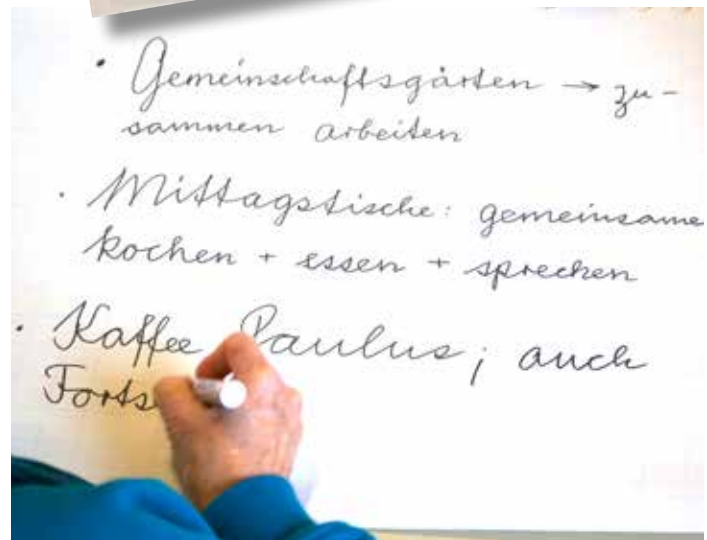 • Gemeinschaftsgärten → zu-
sammen arbeiten
• Mittagstische: gemeinsame
kochen + essen + sprechen
• Kaffee Paulus; auch
Forts